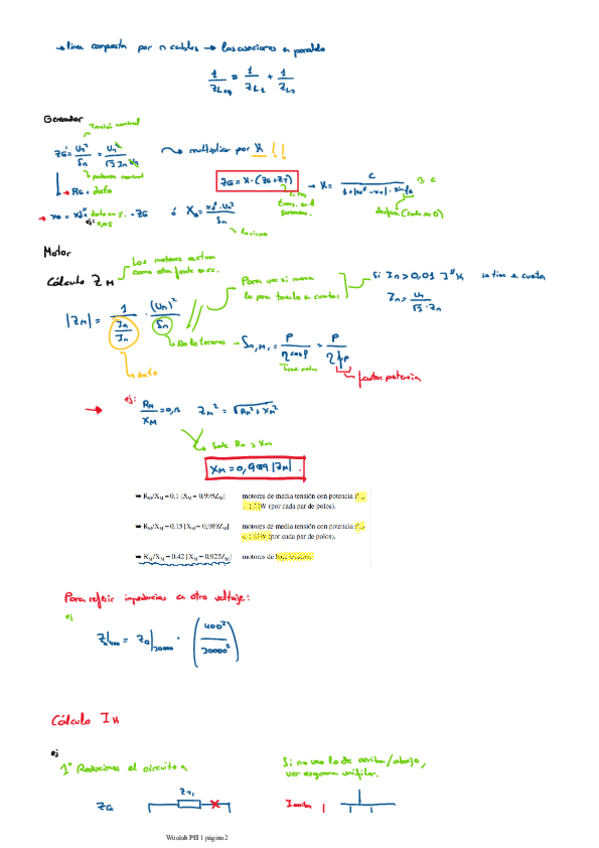 → linea compuesta por n cables → Las asociamos en paralelo
1/ZLeq = 1/ZL1 + 1/ZL2
Generador
Tensión nominal
ZG = Un²/Sn = Un²/√3 In Un → multiplicar por K !!
potencia nominal
RG = dato
ZG = K·(ZG+ZT) → K =
→ Xd'' dato en % · ZG ó XG = Xd''·Un²/Sn
ej: 0,05
Motor
Los motores actuan
como otra fuente en cc.
Cálculo ZM
Para ver si
la para tenerlo en cuenta
Si In > 0,01 I''K se tiene en cuenta
In = Un/√3·Zn
|ZM| = 1/(In/In) · (Un)²/Sn
→ dato
Sn,M = P/η cosφ = P/η fp
→ factor potencia
→ ej: RM/XM = 0,15 ZM² = √RM² + XM²
Sale RM y XM
XM = 0,989 |ZM|.
➡ RM/XM = 0,1 [XM = 0,995ZM] motores de media tensión con potencia
(por cada par de polos).
➡ RM/XM = 0,15 [XM = 0,989ZM] motores de media tensión con potencia
(por cada par de polos).
➡ RM/XM = 0,42 [XM = 0,922ZM] motores de baja tensión
Para referir impedancias a otro voltaje:
ej
Za|400 = Za|20000 · (400²/20000²)
Cálculo IK
ej
1º Reducimos el circuito a
Si no veo lo de arriba/abajo,
ver esquema unifilar.
ZG
ZT1
I arriba
Wuolah PEI 1 página 2